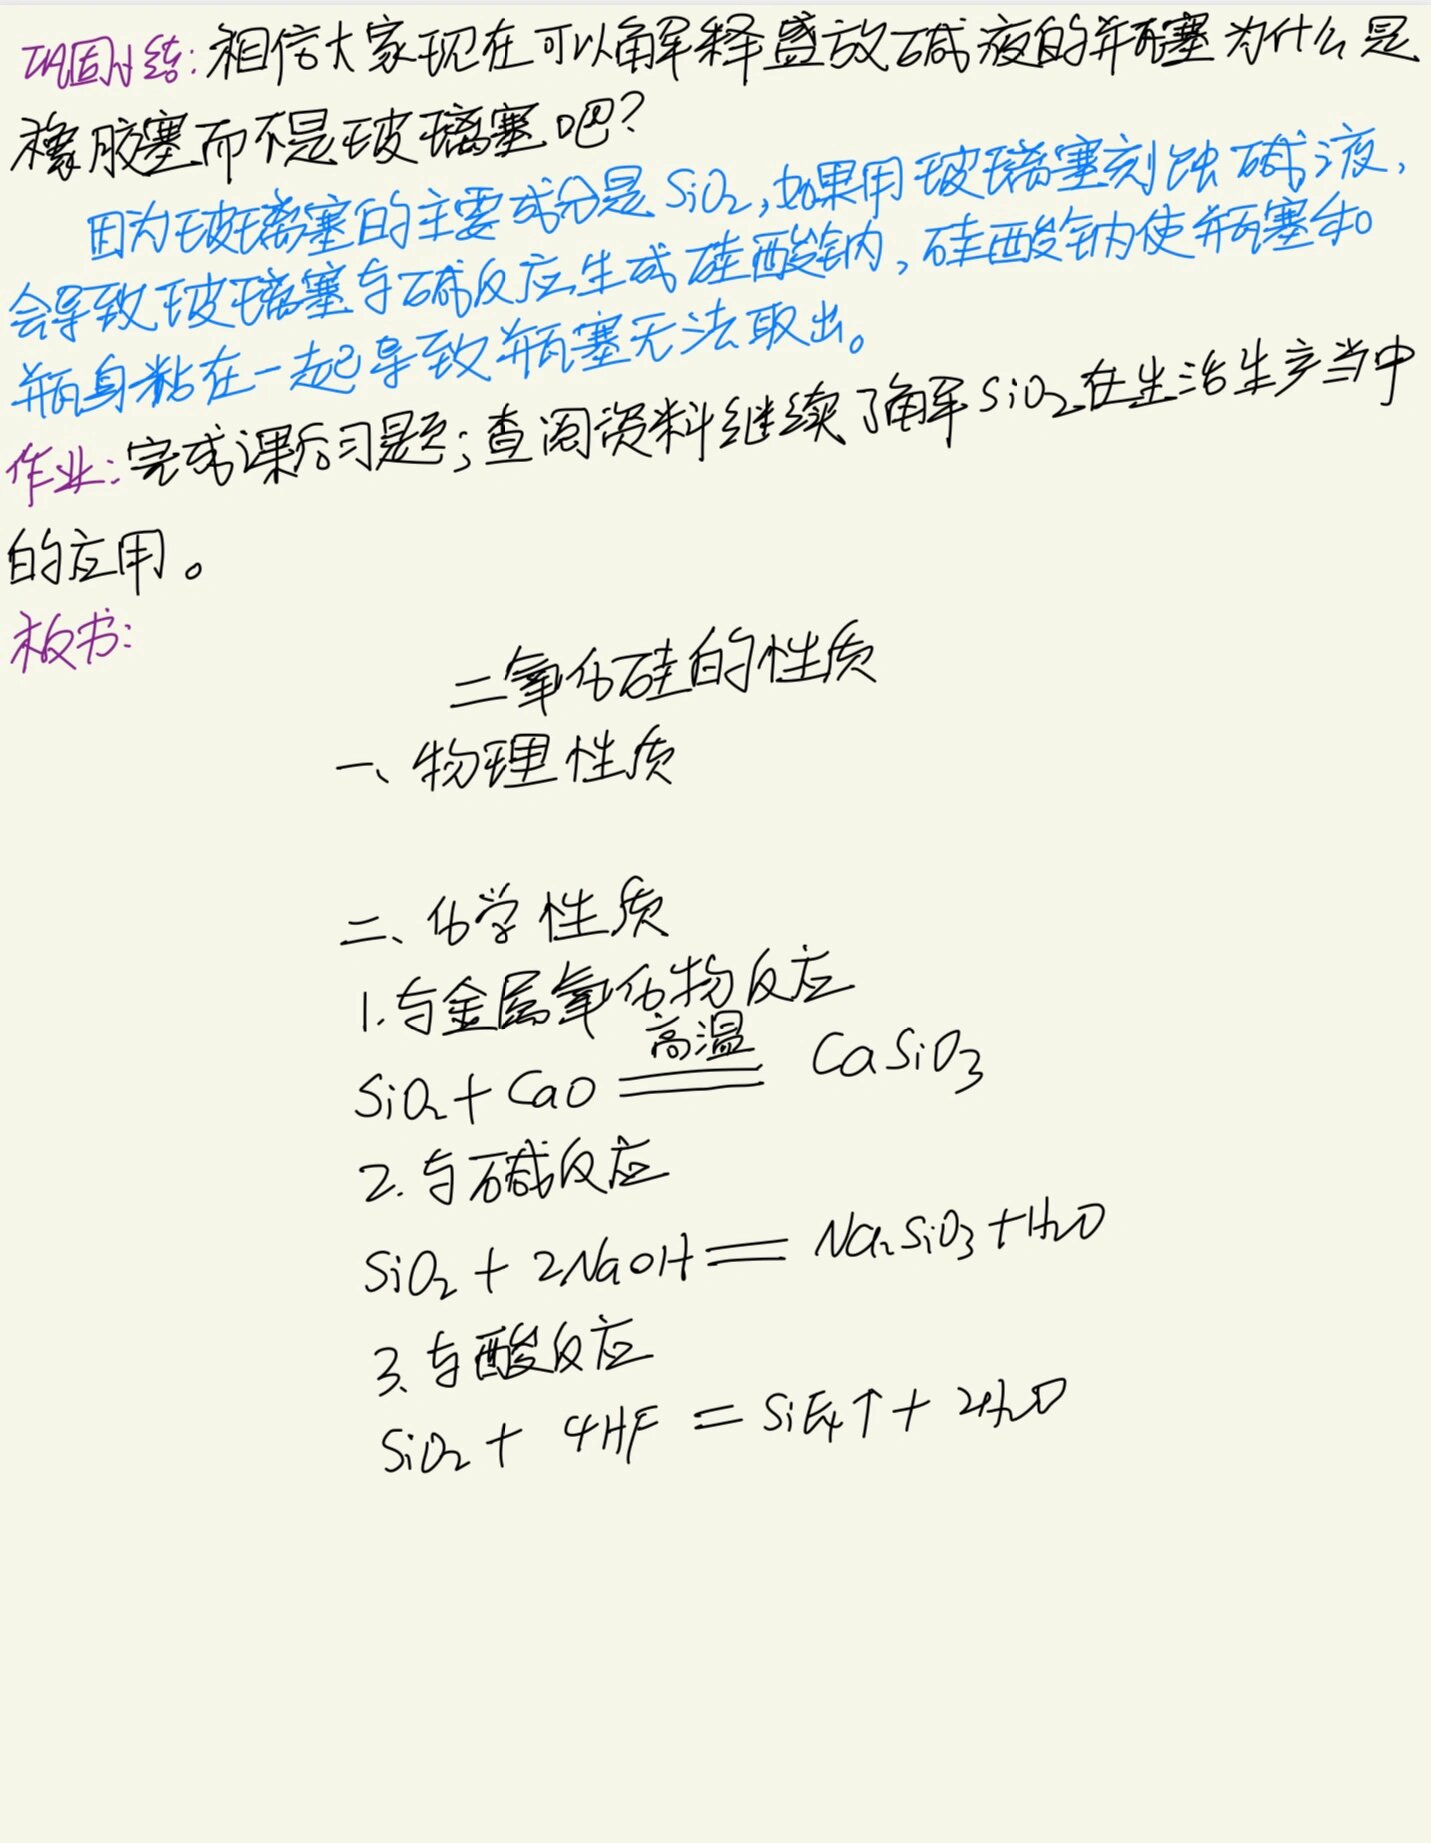 巩固小结:相信大家现在可以解释盛放碱液的瓶塞为什么是
橡胶塞而不是玻璃塞吧?
因为玻璃塞的主要成分是SiO₂,如果用玻璃塞刻蚀碱液,
会导致玻璃塞与碱反应生成硅酸钠,硅酸钠使瓶塞和
瓶身粘在一起导致瓶塞无法取出。
作业:完成课后习题;查阅资料继续了解SiO₂在生活生产当中
的应用。
板书:
二氧化硅的性质
一、物理性质
二、化学性质
1.与金属氧化物反应
高温
SiO₂+CaO══CaSiO₃
2.与碱反应
SiO₂+2NaOH══Na₂SiO₃+H₂O
3.与酸反应
SiO₂+4HF=SiF₄↑+2H₂O